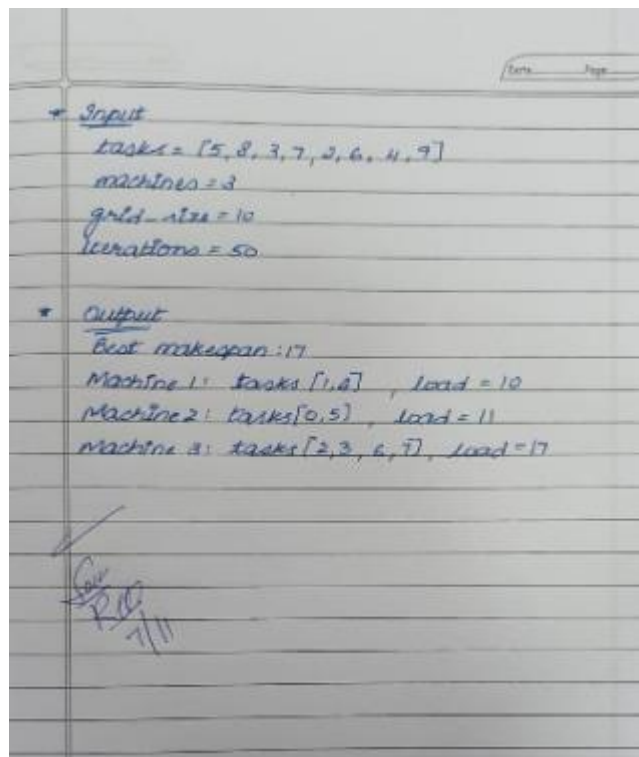 Date Page
* Input
tasks = [5, 8, 3, 7, 2, 6, 4, 9]
machines = 3
grid_size = 10
iterations = 50
* Output
Best makespan : 17
Machine 1: tasks [1,4] , load = 10
Machine 2: tasks [0,5] , load = 11
Machine 3: tasks [2,3, 6, 7], load = 17
7/11